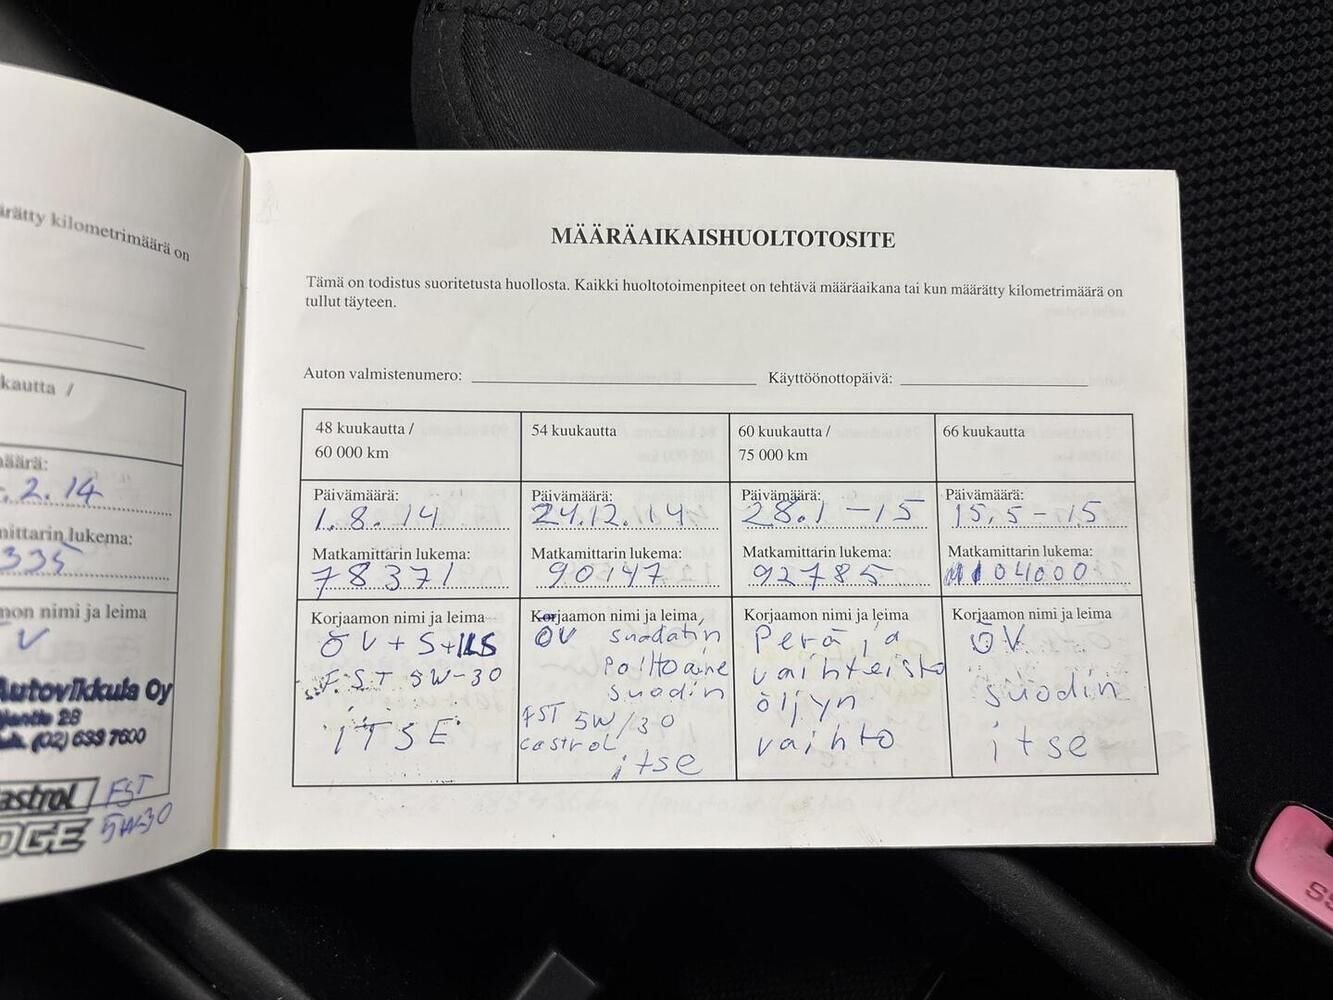 ärätty kilometrimäärä on
kautta /
määrä:
.2.14
mittarin lukema:
335
mon nimi ja leima
V
Autovikkula Oy
28
(02) 633 7600
astrol FST
DGE 5W-30
MÄÄRÄAIKAISHUOLTOTOSITE
Tämä on todistus suoritetusta huollosta. Kaikki huoltotoimenpiteet on tehtävä määräaikana tai kun määrätty kilometrimäärä on
tullut täyteen.
Auton valmistenumero: Käyttöönottopäivä:
48 kuukautta /
60 000 km
Päivämäärä:
1.8.14
Matkamittarin lukema:
78371
Korjaamon nimi ja leima
ÖV + S+ILS
F.S.T 5W-30
iTSE
54 kuukautta
Päivämäärä:
24.12.14
Matkamittarin lukema:
90147
Korjaamon nimi ja leima
ÖV suodatin
Polttoaine
suodin
FST 5W/30
castrol
itse
60 kuukautta /
75 000 km
Päivämäärä:
28.1-15
Matkamittarin lukema:
92785
Korjaamon nimi ja leima
Perä ja
vaihteisto
öljyn
vaihto
66 kuukautta
Päivämäärä:
15.5-15
Matkamittarin lukema:
104000
Korjaamon nimi ja leima
ÖV
suodin
itse